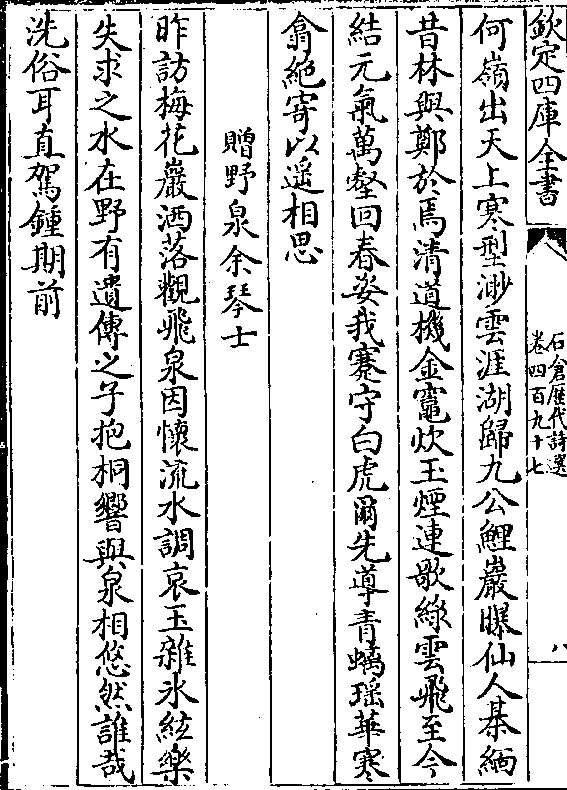 欽定四庫全書
石倉歷代詩選
卷四百九十七
八
何嶺出天上寒型渺雲涯湖歸九公鯉巖曝仙人棊緬
昔林與鄭於焉清道機金竈炊玉煙連歌綠雲飛至今
結元氣萬壑回春姿我蹇守白虎爾先導青螭瑶華寒
翕絶寄以遥相思
贈野泉余琴士
昨訪梅花巖洒落觀飛泉因懷流水調哀玉雜氷絃樂
失求之水在野有遺傳之子抱桐響與泉相悠然誰哉
洗俗耳直駕鍾期前